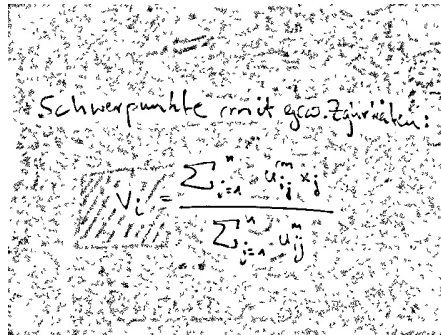 Schwerpunkte mit gew.
V_i = \frac{\sum_{i=1}^{n} u_{ij}^{m} x_j}{\sum_{i=1}^{n} u_{ij}^{m}}